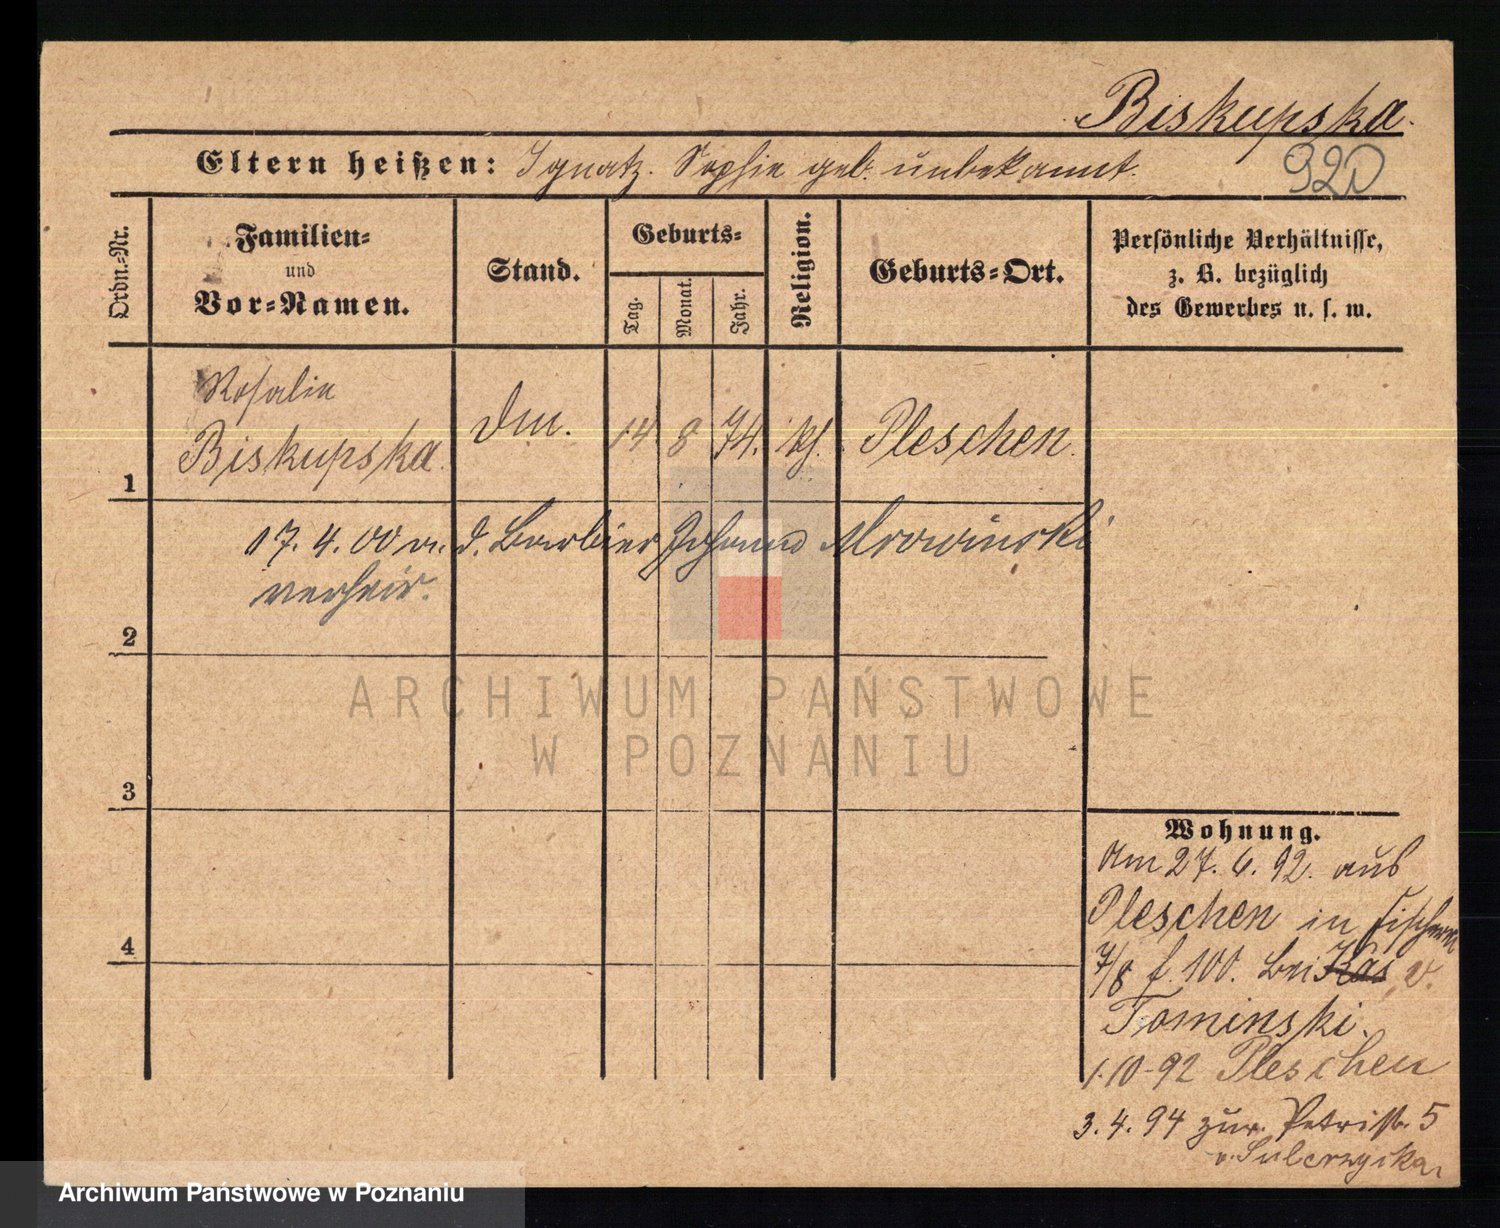 Biskupska.
Eltern heißen: Ignatz. Sophie geb. unbekannt.
920
Ordn.-Nr.
Familien-
und
Vor-Namen.
Stand.
Geburts-
Tag.
Monat.
Jahr.
Religion.
Geburts-Ort.
Persönliche Verhältnisse,
z. B. bezüglich
des Gewerbes u. s. w.
Rosalie
Biskupska
14 8 74. Pleschen.
1
17.4.00 m. d. Barbier Johann Mrowinski
verheir.
2
ARCHIWUM PAŃSTWOWE
W POZNANIU
3
4
Wohnung.
Am 27.6.92. aus
Pleschen in
7/8 f. 100. bei v.
Tominski.
1.10-92 Pleschen
3.4.94 zur. Petristr. 5
Archiwum Państwowe w Poznaniu